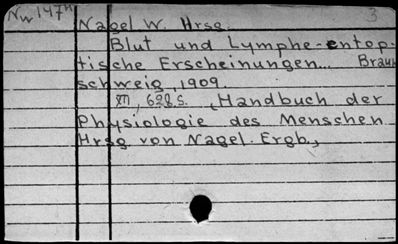 Nw 147H 3
Nagel W. Hrsg.
Blut und Lymphe-entop-
tische Erscheinungen... Braun
schweig, 1909.
XII, 628 S. (Handbuch der
Physiologie des Menschen
Hrsg. von Nagel. Ergb.,